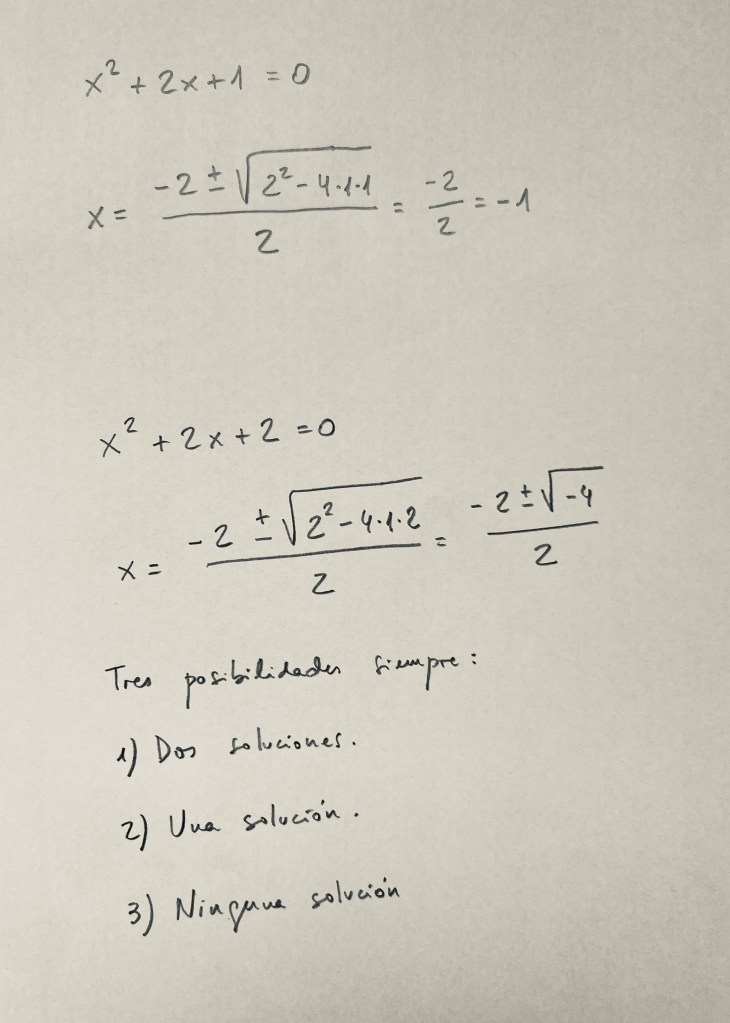 x² + 2x + 1 = 0
x = (-2 ± √(2² - 4·1·1))/2 = -2/2 = -1
x² + 2x + 2 = 0
x = (-2 ± √(2² - 4·1·2))/2 = (-2 ± √-4)/2
Tres posibilidades siempre:
1) Dos soluciones.
2) Una solución.
3) Ninguna solución